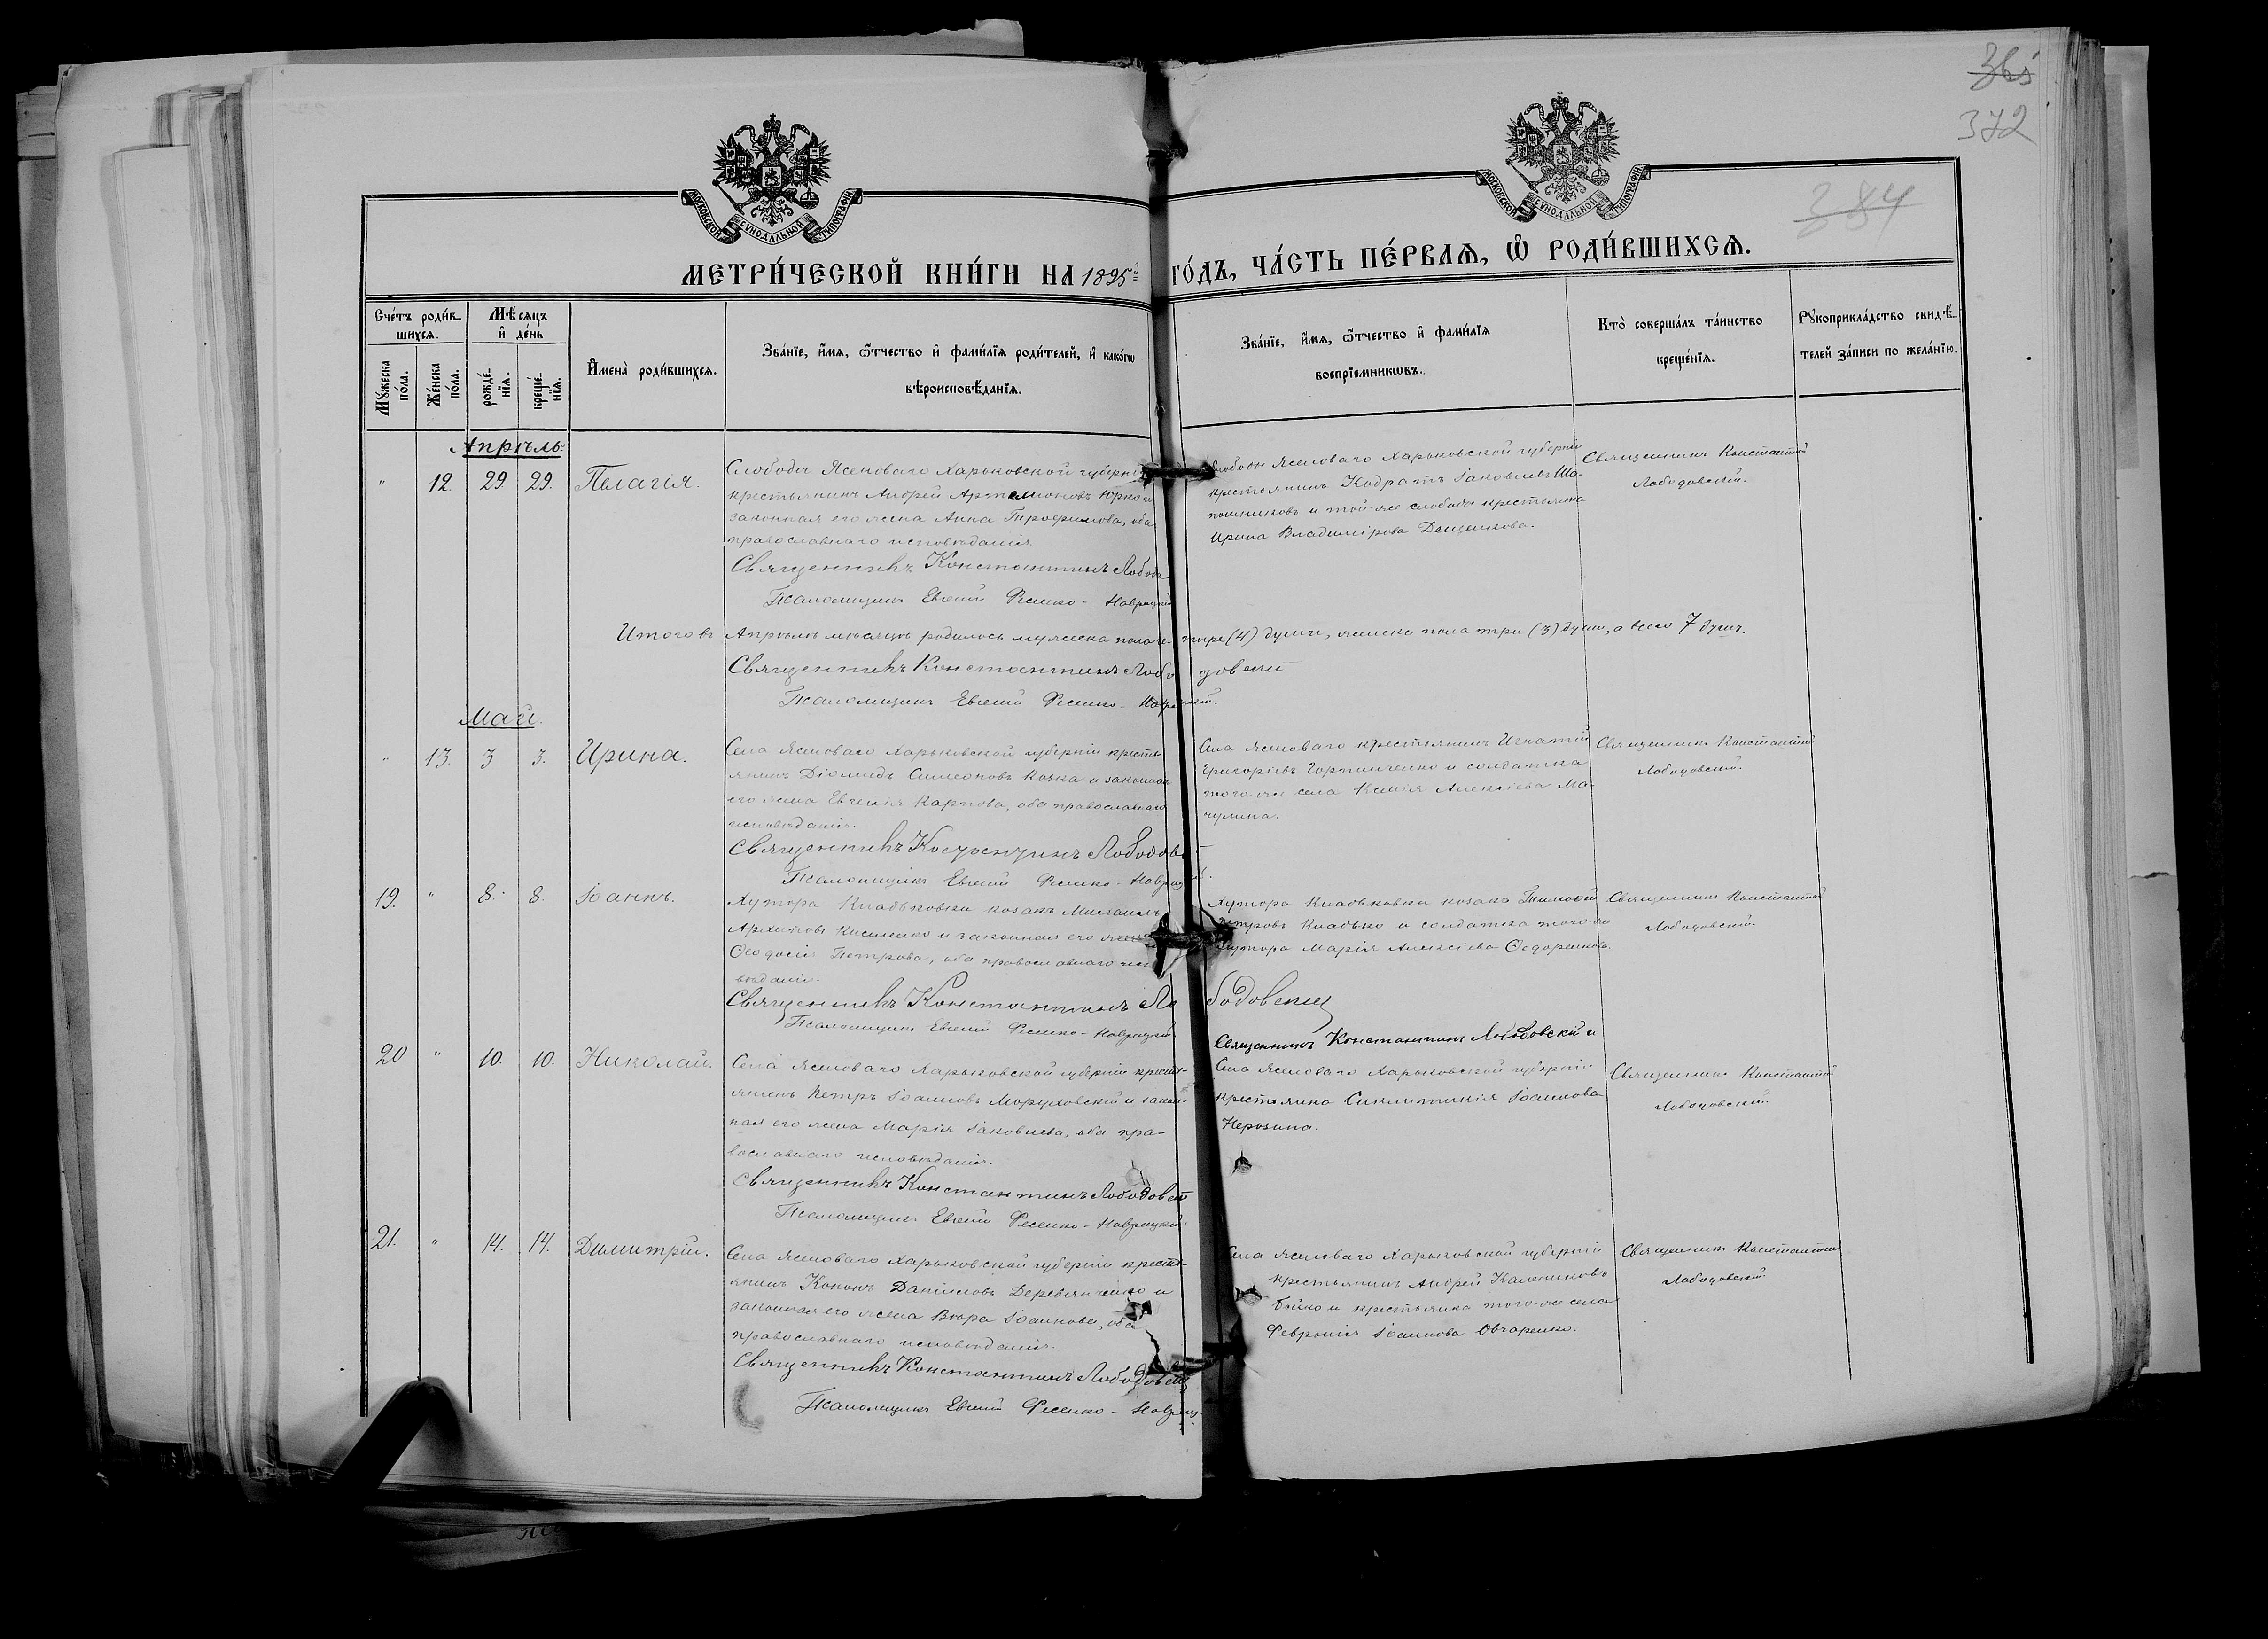 365
372
384
МОСКОВСКОЙ СѴНОДАЛЬНОЙ ТИПОГРАФІИ
МОСКОВСКОЙ СѴНОДАЛЬНОЙ ТИПОГРАФІИ
МЕТРИ́ЧЕСКОЙ КНИ́ГИ НА 1895й ГО́ДЪ, ЧА́СТЬ ПЕ́РВАѦ, Ѽ РОДИ́ВШИХСѦ.
Сче́тъ роди́в-
шихсѧ.
Мꙋ́жеска по́ла.
Же́нска по́ла.
Мѣ́сѧцъ
и҆ де́нь
рожде́-
нїѧ.
креще́-
нїѧ.
И҆мена̀ роди́вшихсѧ.
Зва́нїе, и҆́мѧ, ѻ҆́тчество и҆ фами́лїѧ роди́телей, и҆ како́гѡ
вѣроисповѣ́данїѧ.
Зва́нїе, и҆́мѧ, ѻ҆́тчество и҆ фами́лїѧ
воспрїемникѡвъ.
Кто̀ соверша́лъ та́инство
креще́нїѧ.
Рꙋкоприкла́дство свидѣ́-
телей за́писи по жела́нїю.
Апрѣль.
" 12. 29. 29. Пелагія.
Слободы Ясеноваго Харьковской губерніи
крестьянинъ Андрей Артемоновъ Юрко и
законная его жена Анна Трофимова, оба
православнаго исповѣданія.
Священникъ Константинъ Лобода
Псаломщикъ Евгеній Фесенко-Навроцкій
Слободы Ясеноваго Харьковской губерніи
крестьянинъ Кодратъ Іаковлевъ Ша-
пошниковъ и той-же слободы крестьянка
Ирина Владимірова Деценкова.
Священникъ Константинъ
Лободовскій.
Итого въ Апрѣлѣ мѣсяцѣ родилось мужеска пола че-тыре (4) души, женска пола три (3) души, а всего 7 душъ.
Священникъ Константинъ Лободовскій
Псаломщикъ Евгеній Фесенко-Навроцкій.
Май.
" 13. 3 3. Ирина.
Села Ясеноваго Харьковской губерніи кресть-
янинъ Діомидъ Симеоновъ Козка и законная
его жена Евгенія Карпова, оба православнаго
исповѣданія.
Священникъ Константинъ Лободовс
Псаломщикъ Евгеній Фесенко-Навроцкій.
Села Ясеноваго крестьянинъ Игнатій
Григоріевъ Горпинченко и солдатка
того-же села Ксенія Алексіева Ма-
чулина.
Священникъ Константинъ
Лободовскій.
19. " 8. 8. Іоаннъ.
Хутора Кладьковки козакъ Михаилъ
Архиповъ Киселенко и законная его жена
Ѳеодосія Петрова, оба православнаго испо-
вѣданія.
Священникъ Константинъ Лободовскій
Псаломщикъ Евгеній Фесенко-Навроцкій
Хутора Кладьковки козакъ Тимофей
Петровъ Кладько и солдатка того-же
хутора Марія Алексіева Ѳедоренкова.
Священникъ Константинъ
Лободовскій.
Священникъ Константинъ Лободовскій
20 " 10. 10. Николай.
Села Ясеноваго Харьковской губерніи кресть-
янинъ Петръ Іоанновъ Моруховскій и закон-
ная его жена Марія Іаковлева, оба пра-
вославнаго исповѣданія.
Священникъ Константинъ Лободовскій
Псаломщикъ Евгеній Фесенко-Навроцкій.
Села Ясеноваго Харьковской губерніи
крестьянка Синклитикія Іоаннова
Нерозина.
Священникъ Константинъ
Лободовскій.
21. " 14. 14. Димитрій.
Села Ясеноваго Харьковской губерніи кресть-
янинъ Кононъ Даніиловъ Деревянченко и
законная его жена Вѣра Іоаннова, оба
православнаго исповѣданія.
Священникъ Константинъ Лободовскій
Псаломщикъ Евгеній Фесенко-Навроц.
Села Ясеноваго Харьковской губерніи
крестьянинъ Андрей Калениковъ
Бойко и крестьянка того-же села
Февронія Іоаннова Овчаренко.
Священникъ Константинъ
Лободовскій.